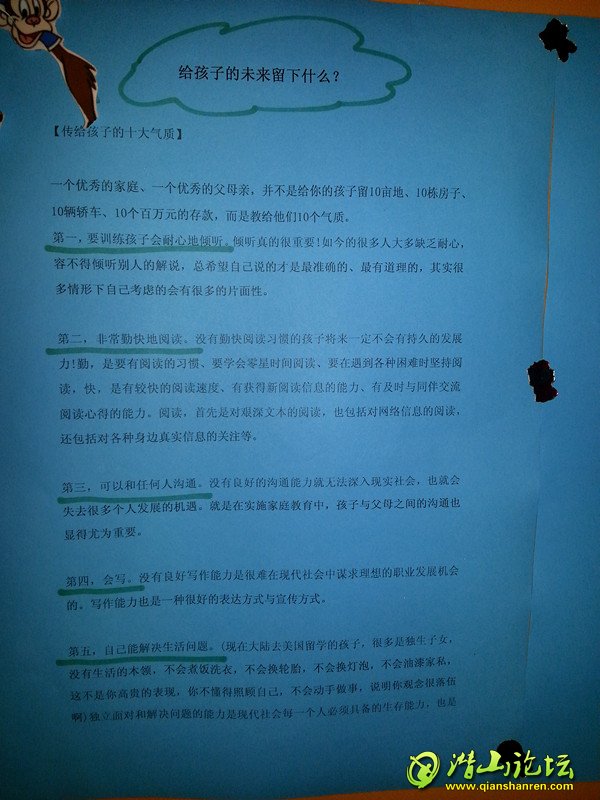 给孩子的未来留下什么？
【传给孩子的十大气质】
一个优秀的家庭、一个优秀的父母亲，并不是给你的孩子留10亩地、10栋房子、
10辆轿车、10个百万元的存款，而是教给他们10个气质。
第一，要训练孩子会耐心地倾听。倾听真的很重要!如今的很多人大多缺乏耐心，
容不得倾听别人的解说，总希望自己说的才是最准确的、最有道理的，其实很
多情形下自己考虑的会有很多的片面性。
第二，非常勤快地阅读。没有勤快阅读习惯的孩子将来一定不会有持久的发展
力!勤，是要有阅读的习惯、要学会零星时间阅读、要在遇到各种困难时坚持阅
读，快，是有较快的阅读速度、有获得新阅读信息的能力、有及时与同伴交流
阅读心得的能力。阅读，首先是对艰深文本的阅读，也包括对网络信息的阅读，
还包括对各种身边真实信息的关注等。
第三，可以和任何人沟通。没有良好的沟通能力就无法深入现实社会，也就会
失去很多个人发展的机遇。就是在实施家庭教育中，孩子与父母之间的沟通也
显得尤为重要。
第四，会写。没有良好写作能力是很难在现代社会中谋求理想的职业发展机会
的。写作能力也是一种很好的表达方式与宣传方式。
第五，自己能解决生活问题。(现在大陆去美国留学的孩子，很多是独生子女，
没有生活的本领，不会煮饭洗衣，不会换轮胎，不会换灯泡，不会油漆家私，
这不是你高贵的表现，你不懂得照顾自己，不会动手做事，说明你观念很落伍
啊)独立面对和解决问题的能力是现代社会每一个人必须具备的生存能力，也是
潜山论坛
www.qianshanren.com